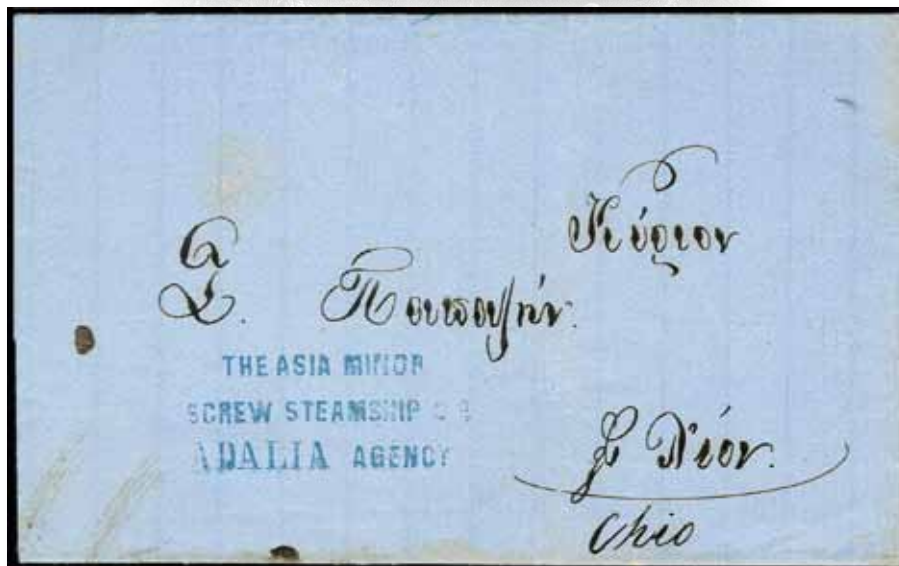 Κύριον
Σ. Παπαγήν.
THE ASIA MINOR
SCREW STEAMSHIP Co
ADALIA AGENCY
Χίον.
Chio